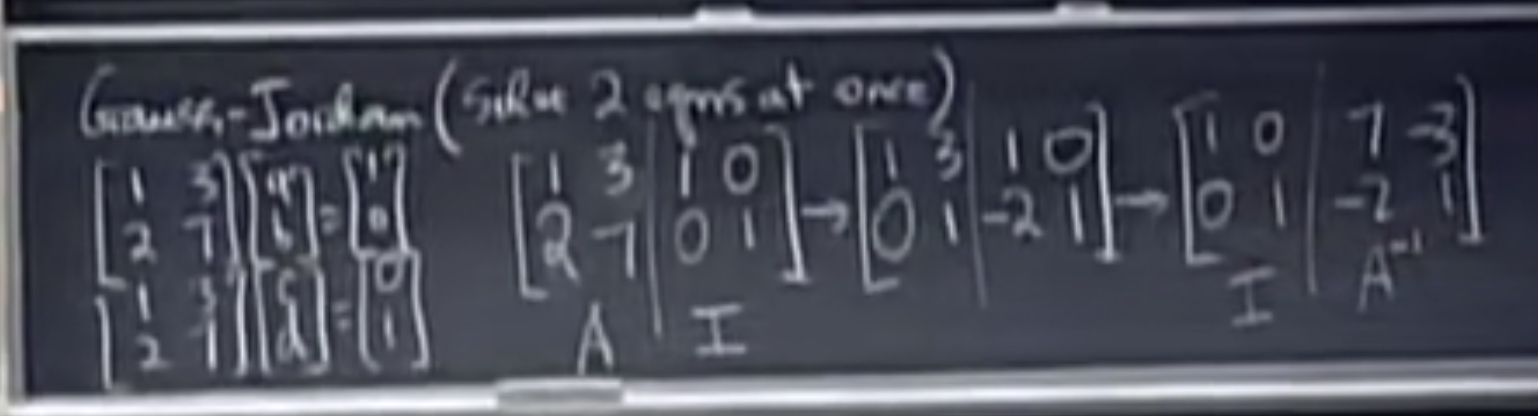 Gauss-Jordan (Solve 2 eqns at once)
[1 3; 2 7] [a; b] = [1; 0]
[1 3; 2 7] [c; d] = [0; 1]
[1 3 | 1 0; 2 7 | 0 1] → [1 3 | 1 0; 0 1 | -2 1] → [1 0 | 7 -3; 0 1 | -2 1]
A I I A⁻¹